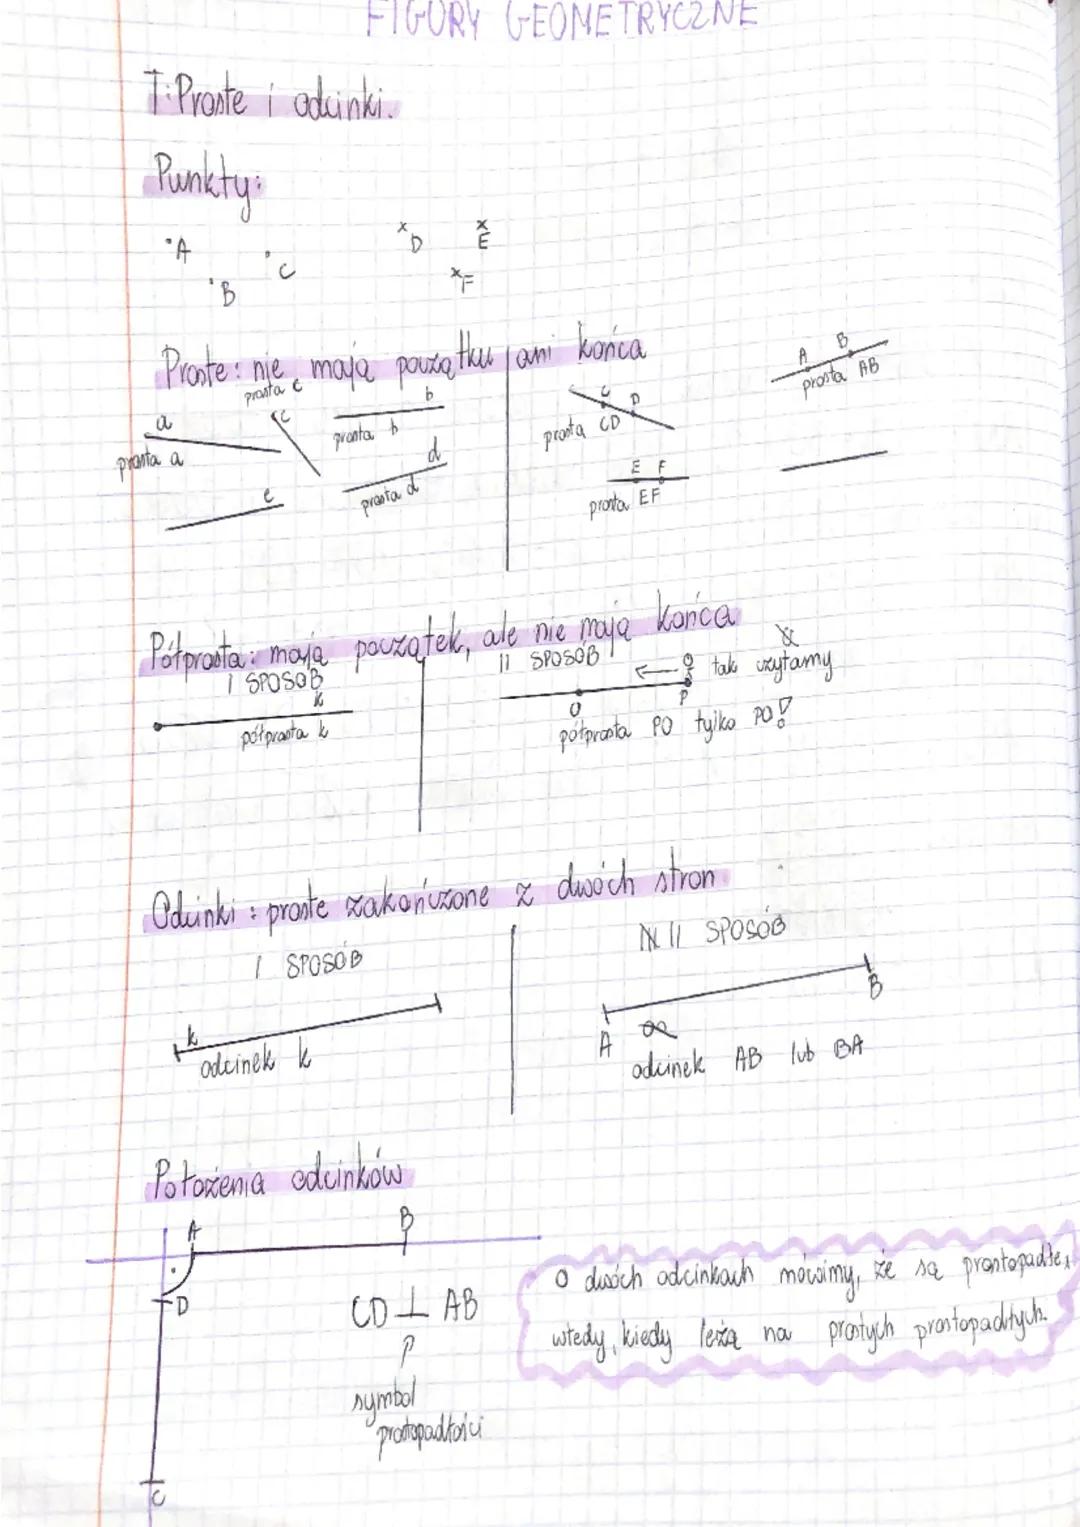 FIGURY GEOMETRYCZNE
T: Proste i odcinki.
Punkty:
A
B
C
D
E
F
Proste: nie mają początku ani końca
a
prosta a
prosta c
c
b
prosta b
d
prosta d
e
C D
prosta CD
E F
prosta EF
A B
prosta AB
Półprosta: mają początek, ale nie mają końca
I SPOSÓB
k
półprosta k
II SPOSÓB
← tak czytamy
O P
półprosta PO tylko PO!
Odcinki: proste zakończone z dwóch stron
I SPOSÓB
k
odcinek k
II SPOSÓB
A B
odcinek AB lub BA
Położenia odcinków
A B
D
C
CD ⊥ AB
symbol
prostopadłości
O dwóch odcinkach mówimy, że są prostopadłe,
wtedy, kiedy leżą na prostych prostopadłych.